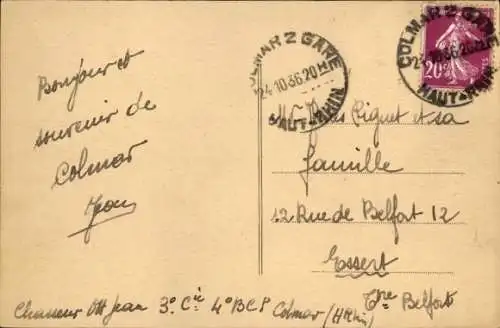 Bonjour et
souvenir de
Colmar
Jean
COLMAR 2 GARE
24.10.36.20H
HAUT-RHIN
COLMAR 2 GARE
24.10.36.20H
HAUT-RHIN
20c
Mr Riguet et sa
famille
12 Rue de Belfort 12
Essert
Tre Belfort
Chasseur Ott Jean 3° Cie 4° BCP Colmar (HRhin)